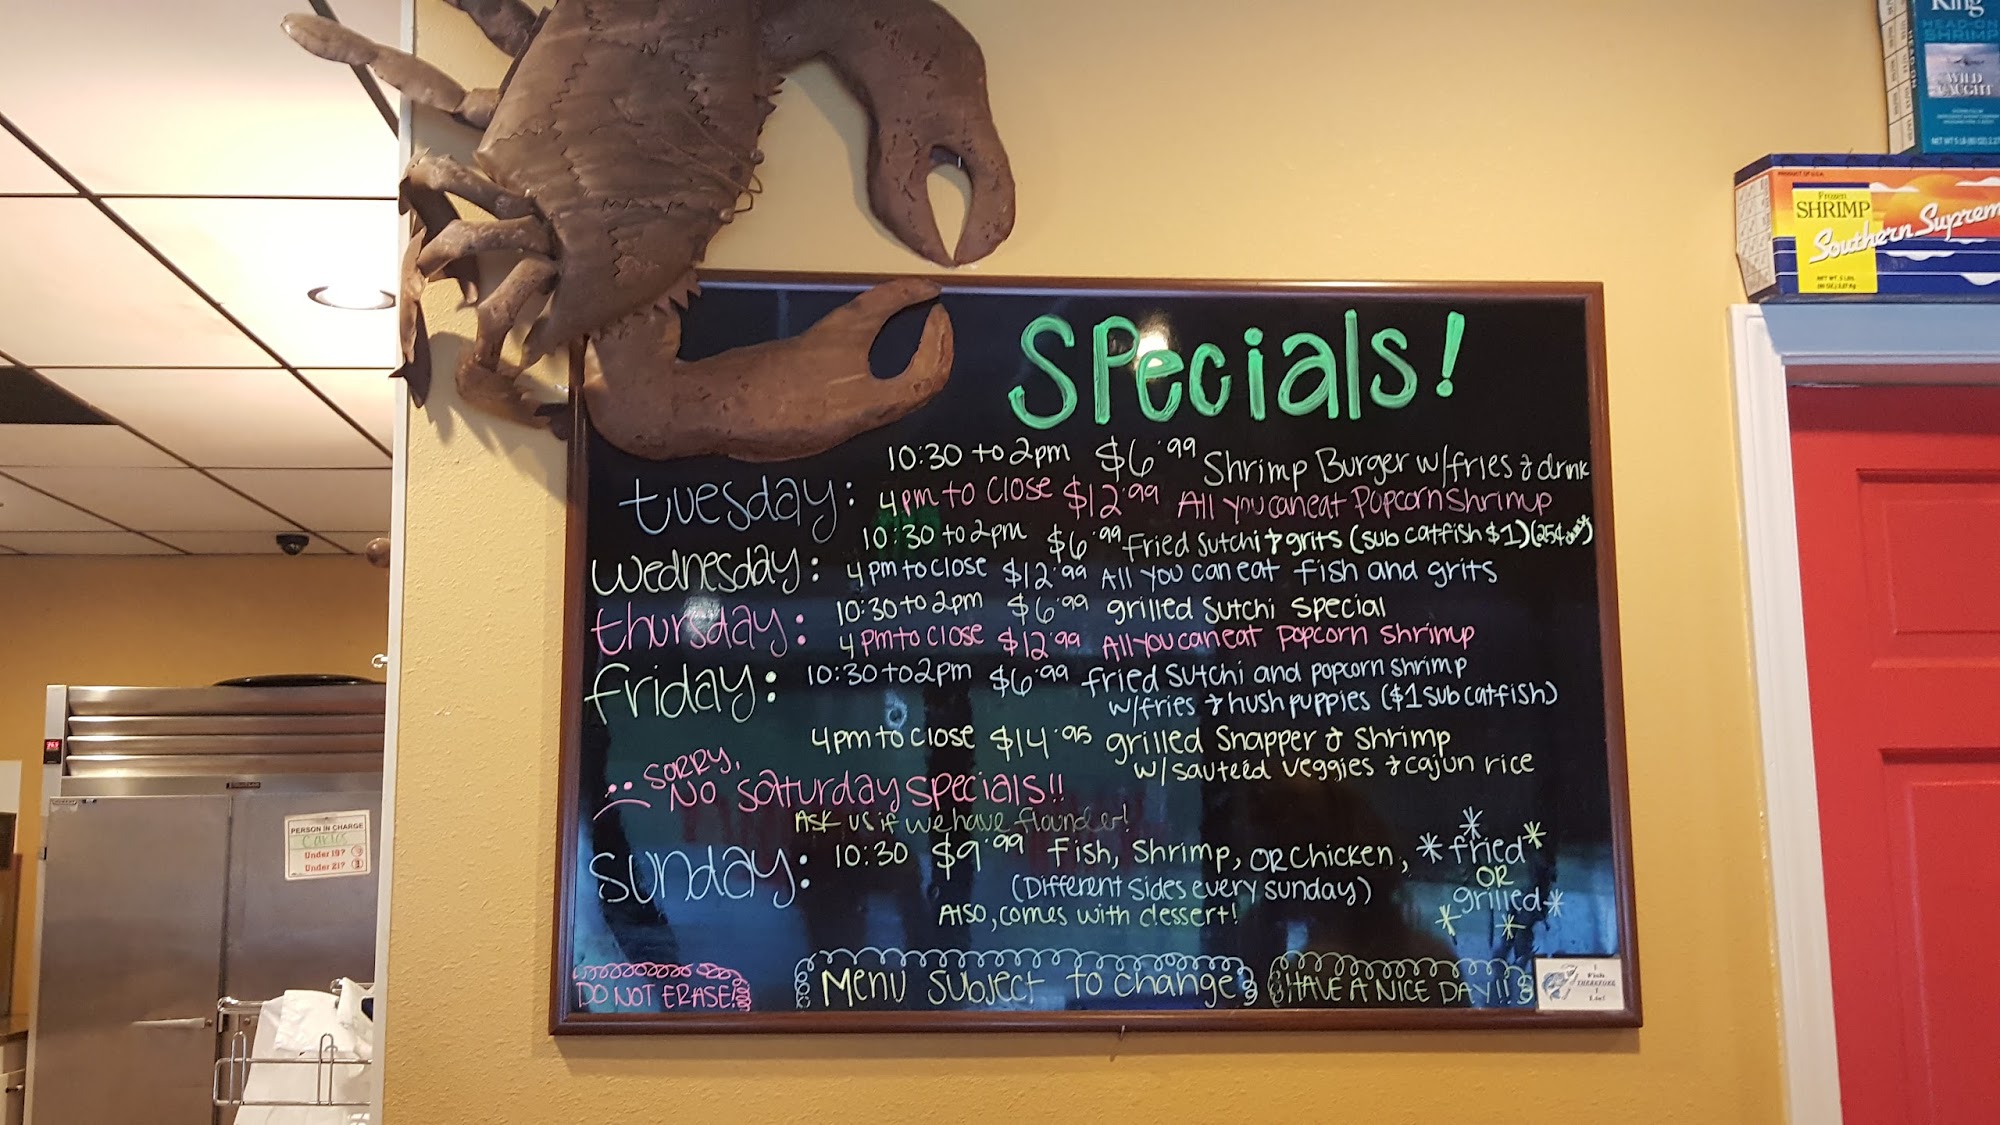 Specials!
Tuesday: 10:30 to 2pm $6.99 Shrimp Burger w/fries & drink
4pm to close $12.99 All you can eat Popcorn Shrimp
Wednesday: 10:30 to 2pm $6.99 Fried Sutchi & grits (sub catfish $1)
4pm to close $12.99 All you can eat fish and grits
Thursday: 10:30 to 2pm $6.99 grilled Sutchi Special
4pm to close $12.99 All you can eat popcorn shrimp
friday: 10:30 to 2pm $6.99 fried Sutchi and popcorn shrimp
w/fries & hushpuppies ($1 sub catfish)
4pm to close $14.95 grilled Snapper & Shrimp
w/sauteed veggies & cajun rice
SORRY,
NO Saturday Specials!!
Ask us if we have flounder!
Sunday: 10:30 $9.99 Fish, Shrimp, OR Chicken, *fried*
OR
grilled*
(Different sides every sunday)
Also, comes with dessert!
DO NOT ERASE!
Menu Subject to change
HAVE A NICE DAY!!
I
Fish
THEREFORE
I
Lie!
King
HEAD-ON
SHRIMP
WILD
CAUGHT
PRODUCT OF U.S.A.
Frozen
SHRIMP
Southern Suprem
NET WT. 5 LBS.
PERSON IN CHARGE
Under 19?
Under 21?